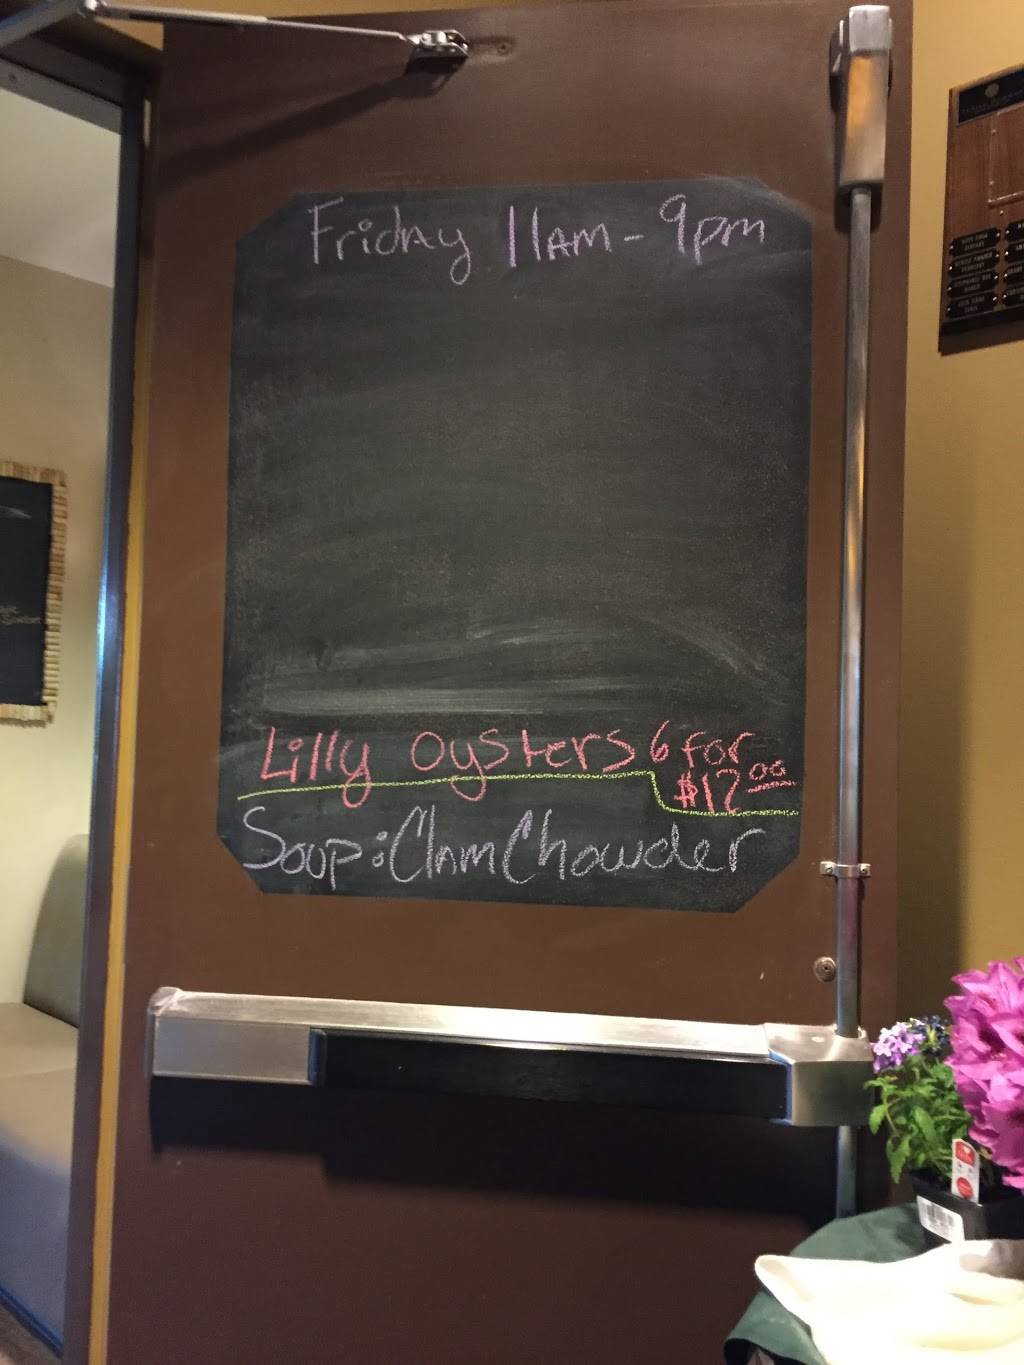 Friday 11am - 9pm
Lilly Oysters 6 for
$12.00
Soup: Clam Chowder